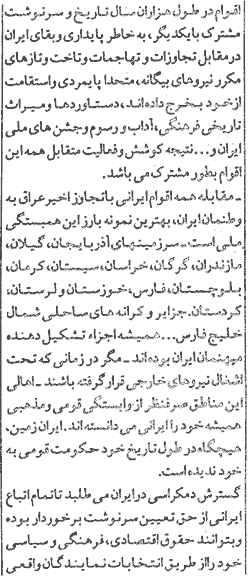 اقوام در طول هزاران سال تاریخ و سرنوشت
مشترک بایکدیگر، به خاطر پایداری وبقای ایران
درمقابل تجاوزات و تهاجمات وتاخت وتازهای
مکرر نیروهای بیگانه، متحدا پایمردی واستقامت
ازخود بخرج داده‌اند، دستاوردها ومیراث
تاریخی فرهنگی، آداب و رسوم وجشن های ملی
ایران و... نتیجه کوشش وفعالیت متقابل همه این
اقوام بطور مشترک می باشد.
ـ مقابله همه اقوام ایرانی باتجاوز اخیر عراق به
وطنمان ایران، بهترین نمونه بارز این همبستگی
ملی است ـ سرزمینهای آذربایجان، گیلان،
مازندران، گرگان، خراسان، سیستان، کرمان،
بلوچستان، فارس، خوزستان و لرستان،
کردستان. جزایر و کرانه های ساحلی شمال
خلیج فارس... همیشه اجزاء تشکیل دهنده
میهنمان ایران بوده‌اند ـ مگر در زمانی که تحت
اشغال نیروهای خارجی قرارگرفته باشند ـ اهالی
این مناطق صرفنظر از وابستگی قومی ومذهبی
همیشه خود را ایرانی می دانسته اند. ایران زمین،
هیچگاه در طول تاریخ خود حکومت قومی به
خود ندیده است.
گسترش دمکراسی درایران می طلبد تاتمام اتباع
ایرانی از حق تعیین سرنوشت برخوردار بوده
وبتوانند حقوق اقتصادی، فرهنگی و سیاسی
خود رااز طریق انتخابات نمایندگان واقعی